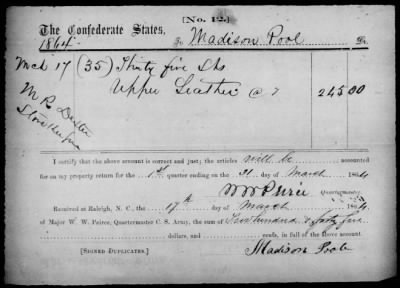 [No. 12.]
The Confederate States,
1864. To Madison Pool Dr.
Mch 17 (35) Thirty five Lbs
Upper Leather @ 7 245 00
M R
Store
I certify that the above account is correct and just; the articles will be accounted
for on my property return for the 1st quarter ending on the 31 day of March 1864
W W Peirce Quartermaster.
Received at Raleigh, N. C., the 17th day of March 1864,
of Major W. W. Peirce, Quartermaster C. S. Army, the sum of Two hundred & forty five
dollars, and cents, in full of the above account.
Madison Pool
[SIGNED DUPLICATES.]